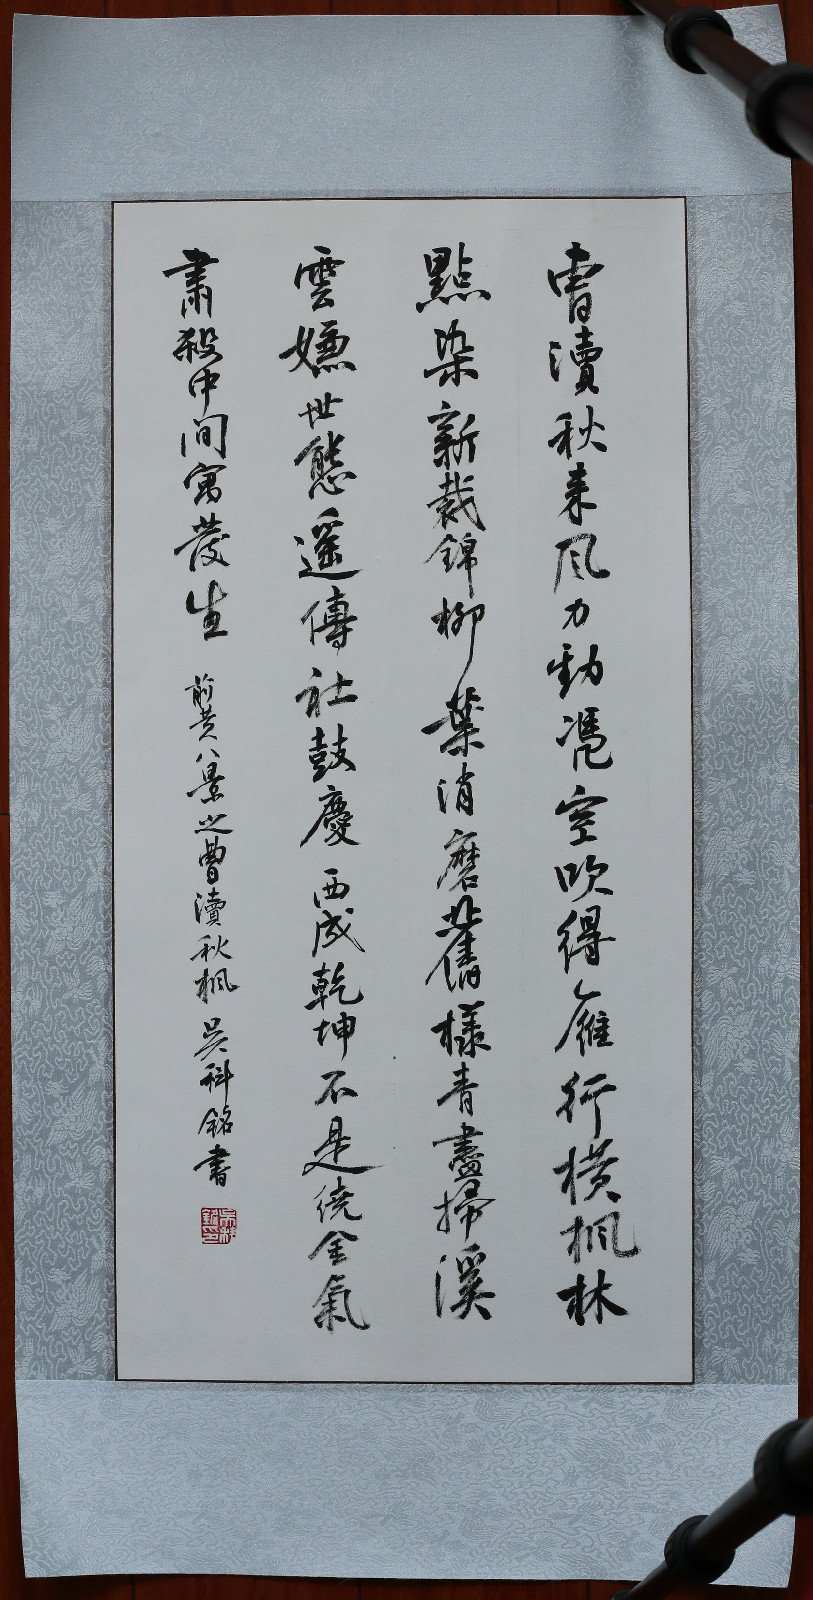 曹瀆秋来风力勁憑空吹得雁行横楓林
點染新裁錦柳葉消磨舊樣青盡掃溪
雲嫌世態遥傳社鼓慶西成乾坤不是繞金氣
肅殺中间寓發生
前黄八景之曹瀆秋楓 吴科銘書